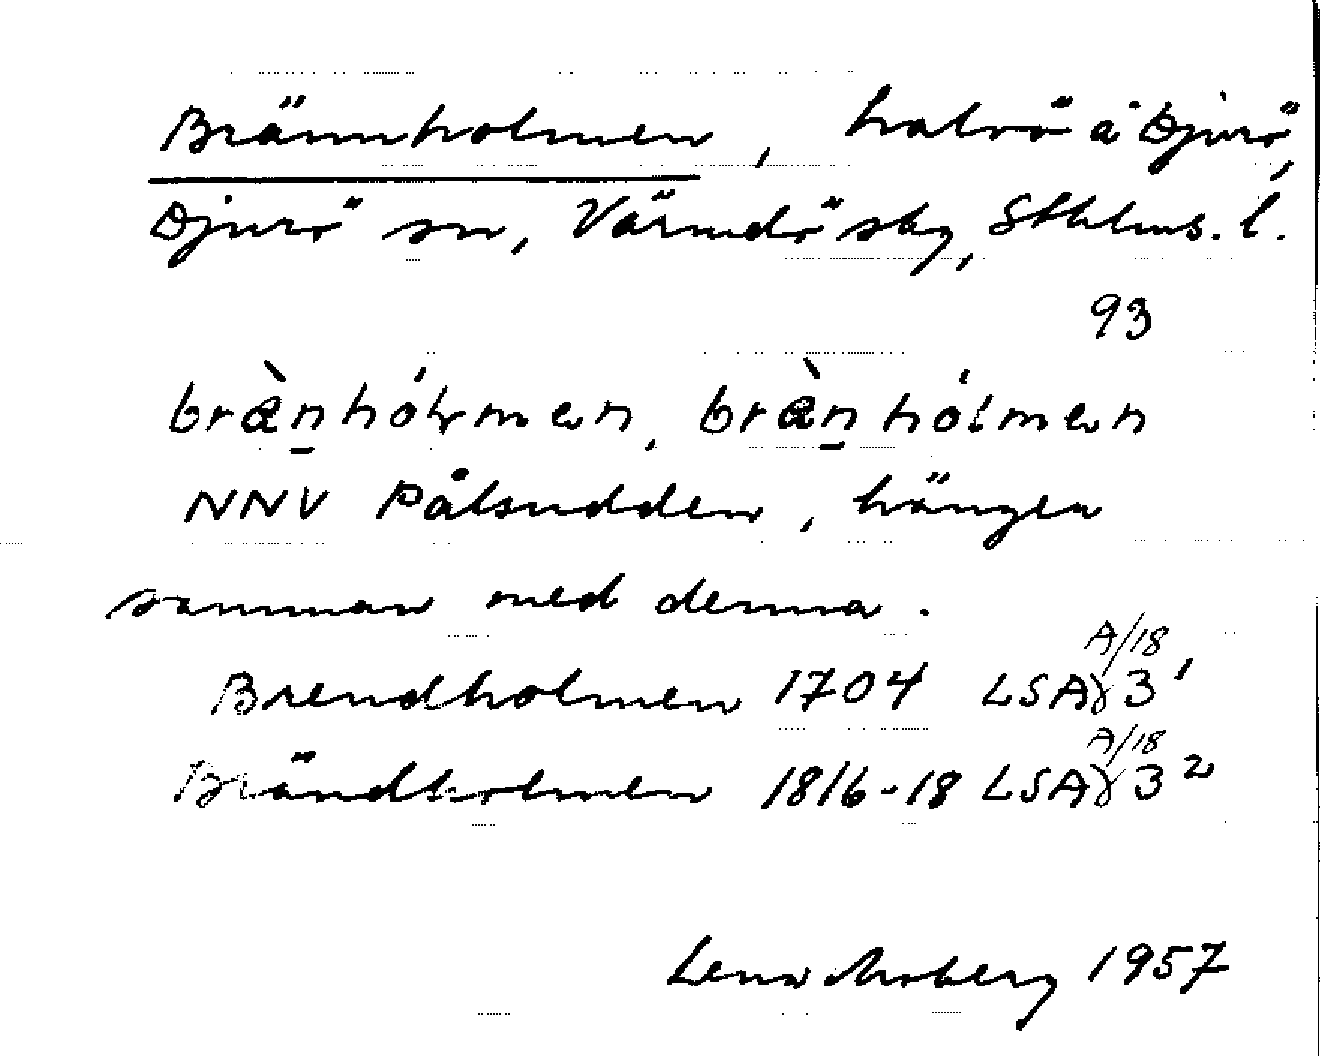 Brännholmen, halvö å Djurö,
Djurö sn, Värmdö skg, Sthlms. l.
93
bræ̀n̲hólmen, bræ̀n̲hólmen
NNV Pålsudden, hänger
samman med denna.
Brendholmen 1704 LSA A/18 γ 3¹
Brändholmen 1816-18 LSA A/18 γ 3²
Lena Moberg 1957